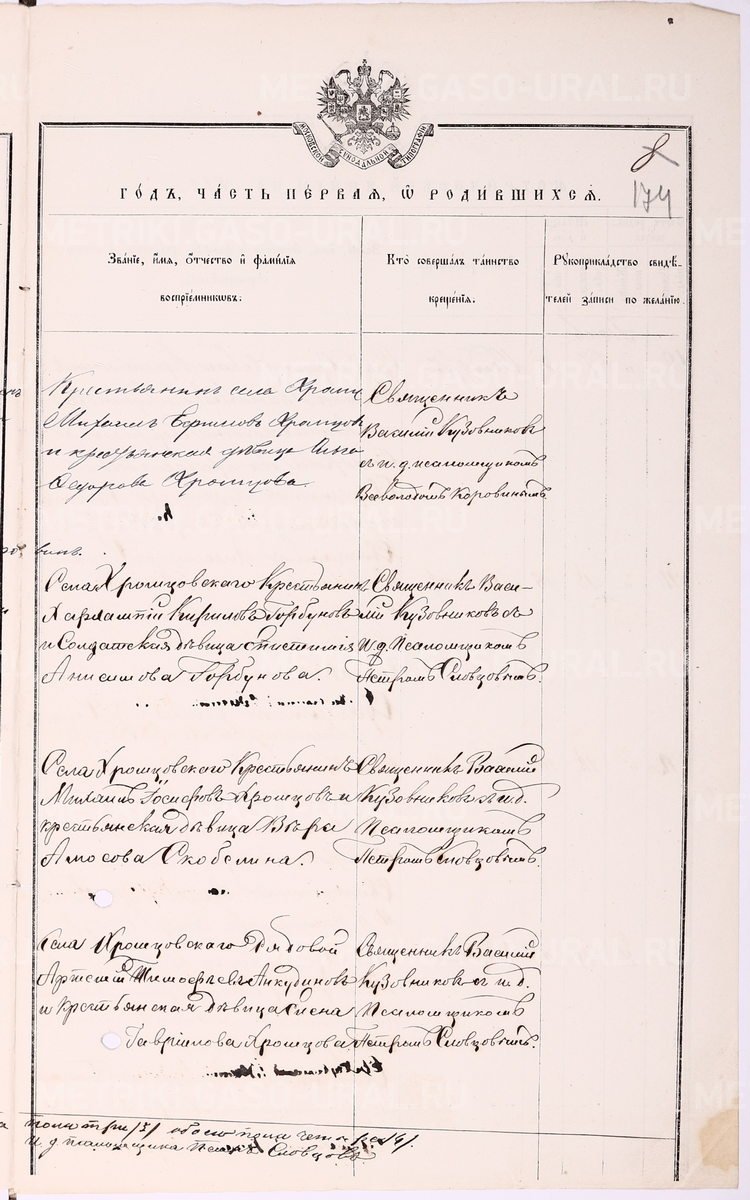 METRIKI.GASO-URAL.RU
МОСКОВСКОЙ СѴНОДАЛЬНОЙ ТИПОГРАФІИ
8
174
ГОДЪ, ЧАСТЬ ПЕРВАЯ, Ѡ РОДИВШИХСЯ.
Званіе, имя, отчество и фамилія воспріемниковъ:
Кто совершалъ таинство крещенія:
Рукоприкладство свидѣ-
телей записи по желанію.
Крестьянинъ села Хромц
Михаилъ Ефимовъ Хромцов
и крестьянская дѣвица Ольга
Ѳедорова Хромцова.
Священникъ
Василій Кузовниковъ
съ и. д. псаломщикомъ
Всеволодомъ Коровинымъ
Села Хромцовскаго Крестьянинъ
Харлампій Кириловъ Горбуновъ
и Солдатская дѣвица Епистимія
Анисимова Горбунова.
Священникъ Васи-
лій Кузовниковъ съ
И. д. Псаломщикомъ
Петромъ Словцовымъ.
Села Хромцовскаго Крестьянинъ
Михаилъ Іосифовъ Хромцовъ и
крестьянская дѣвица Вѣра
Амосова Скобелина.
Священникъ Василій
Кузовниковъ съ и. д.
Псаломщикомъ
Петромъ Словцовымъ.
Села Хромцовскаго Рядовой
Артемій Тимофѣевъ Анкудиновъ
и Крестьянская дѣвица Елена
Гавріилова Хромцова
Священникъ Василій
Кузовниковъ съ и. д.
Псаломщикомъ
Петромъ Словцовымъ.
и. д. псаломщика Петръ Словцовъ